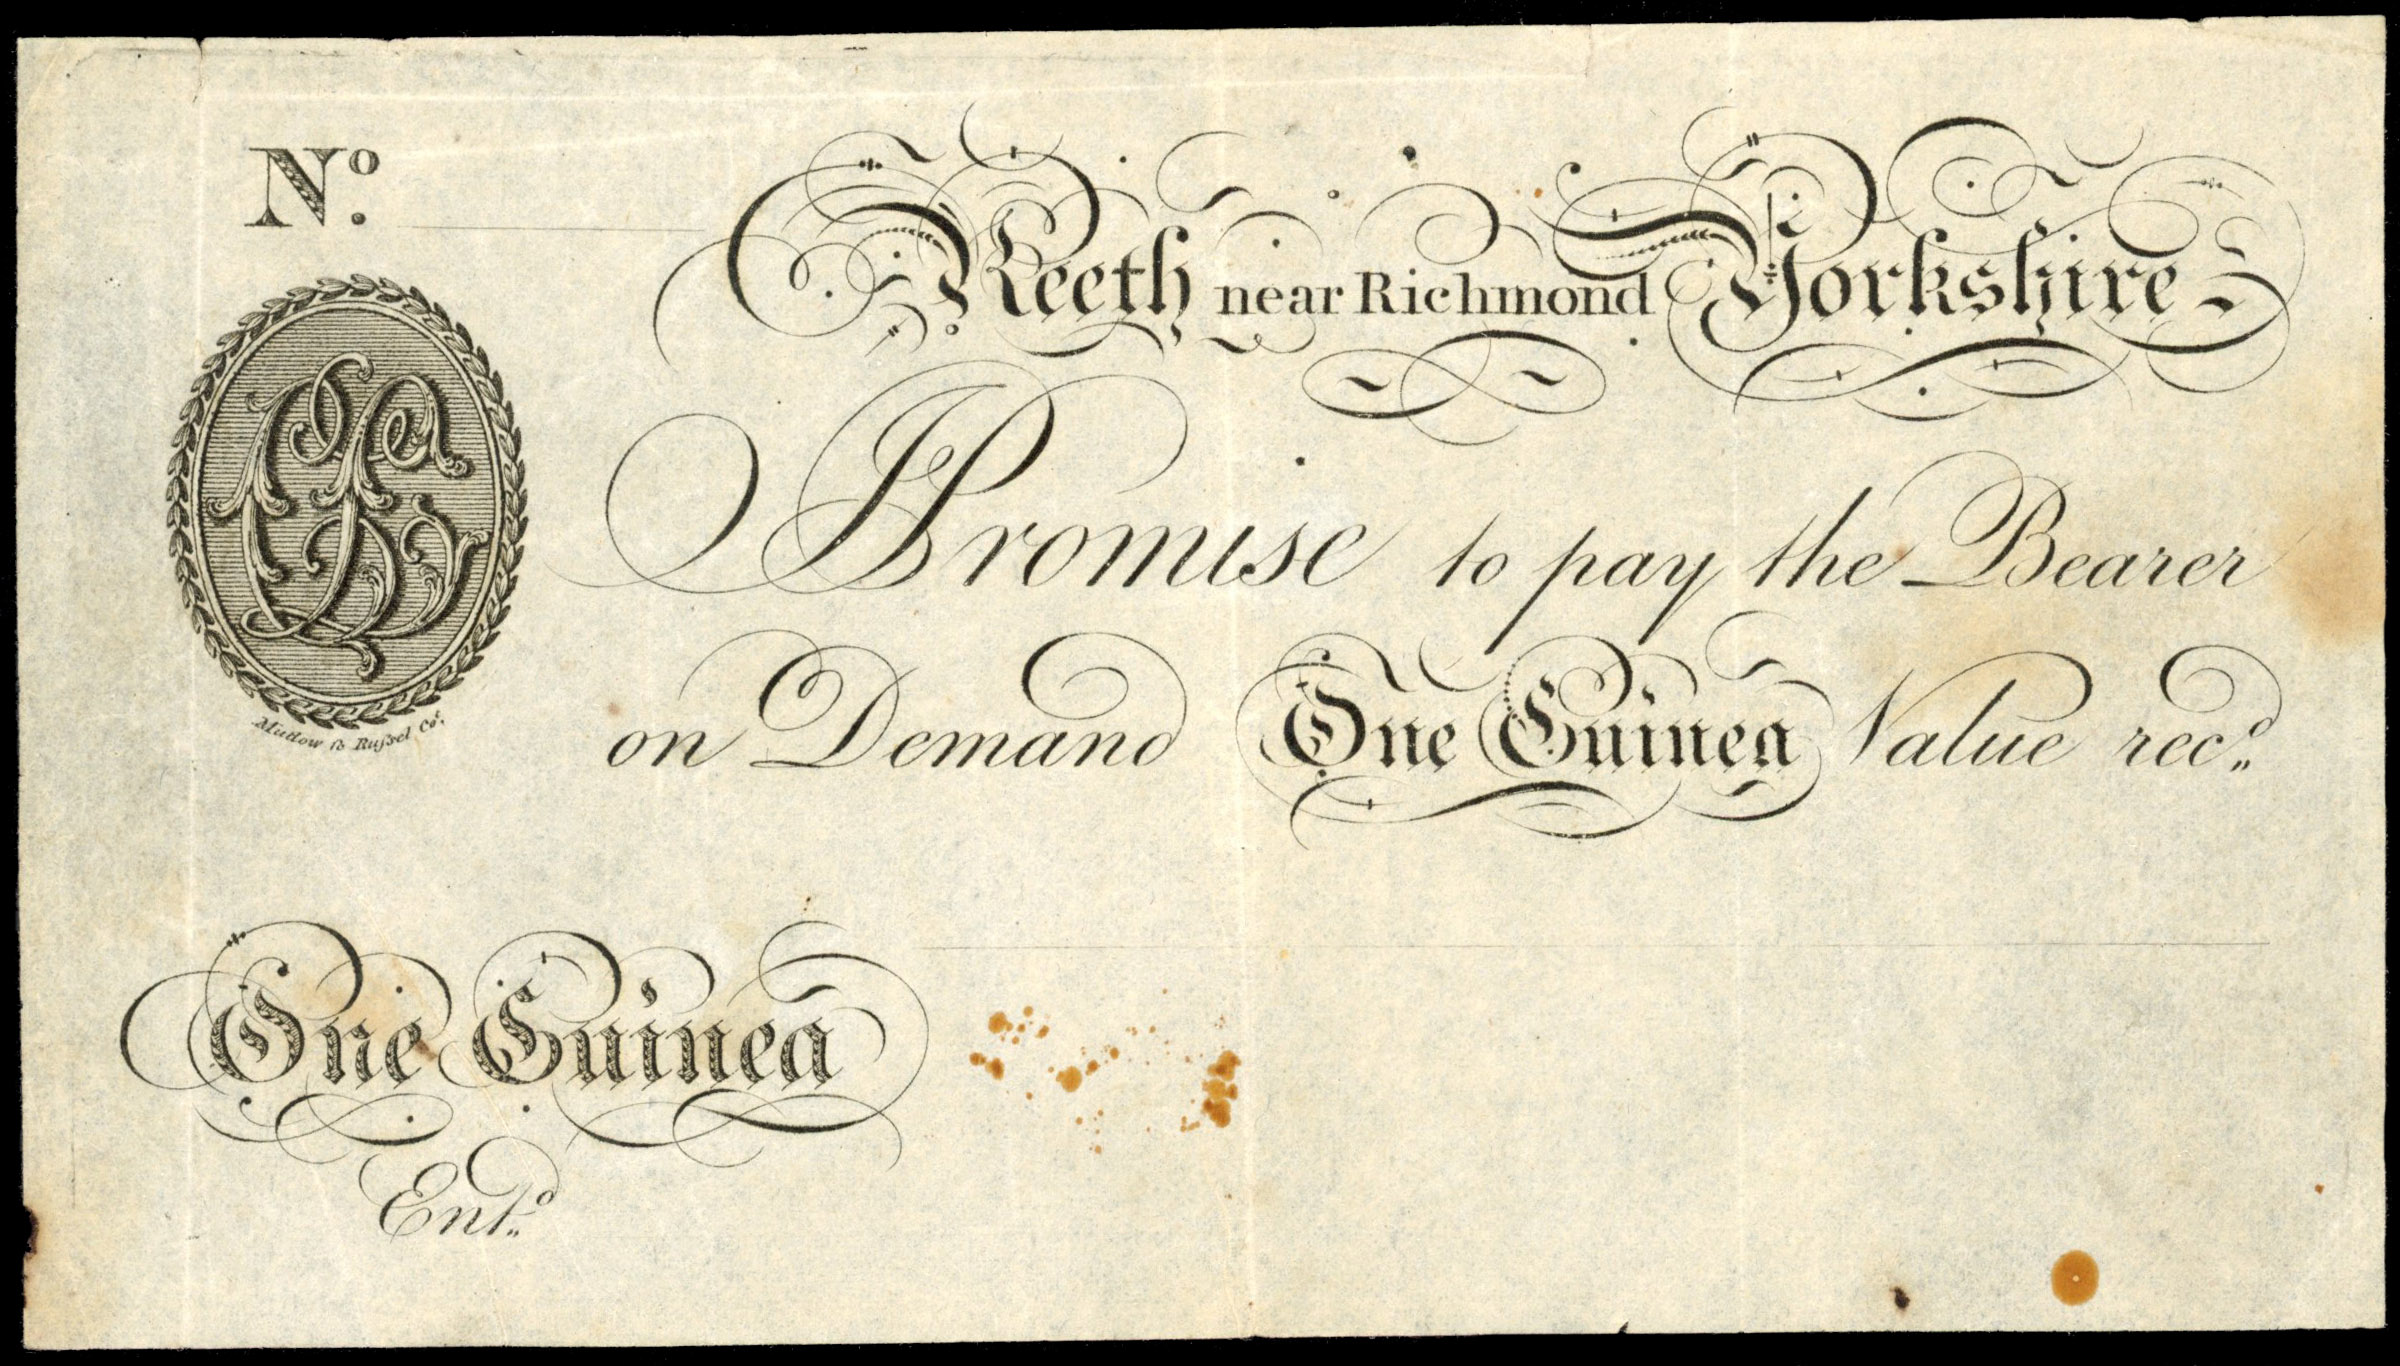 Nº.
Reeth near Richmond Yorkshire
I Promise to pay the Bearer
on Demand One Guinea Value recd.
Mutlow 13 Rufsel Cot.
One Guinea
Entd.